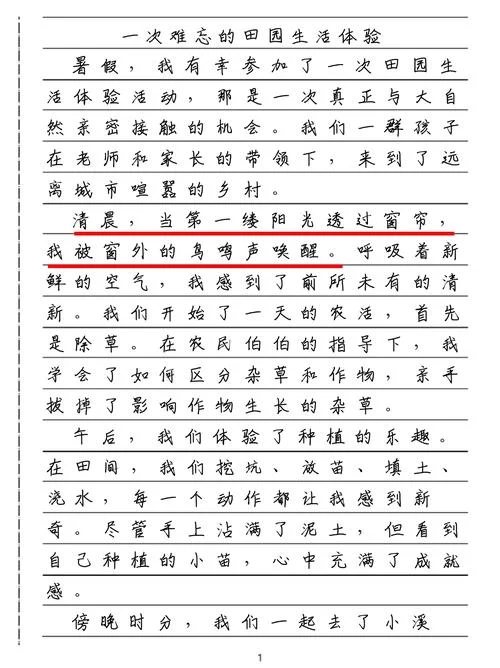 一次难忘的田园生活体验
暑假，我有幸参加了一次田园生
活体验活动，那是一次真正与大自
然亲密接触的机会。我们一群孩子
在老师和家长的带领下，来到了远
离城市喧嚣的乡村。
清晨，当第一缕阳光透过窗帘，
我被窗外的鸟鸣声唤醒。呼吸着新
鲜的空气，我感到了前所未有的清
新。我们开始了一天的农活，首先
是除草。在农民伯伯的指导下，我
学会了如何区分杂草和作物，亲手
拔掉了影响作物生长的杂草。
午后，我们体验了种植的乐趣。
在田间，我们挖坑、放苗、填土、
浇水，每一个动作都让我感到新
奇。尽管手上沾满了泥土，但看到
自己种植的小苗，心中充满了成就
感。
傍晚时分，我们一起去了小溪
1